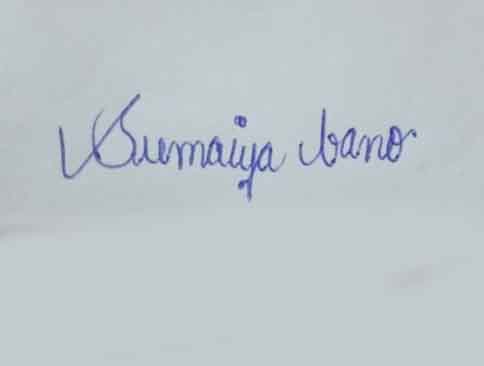 Sumaiya bano